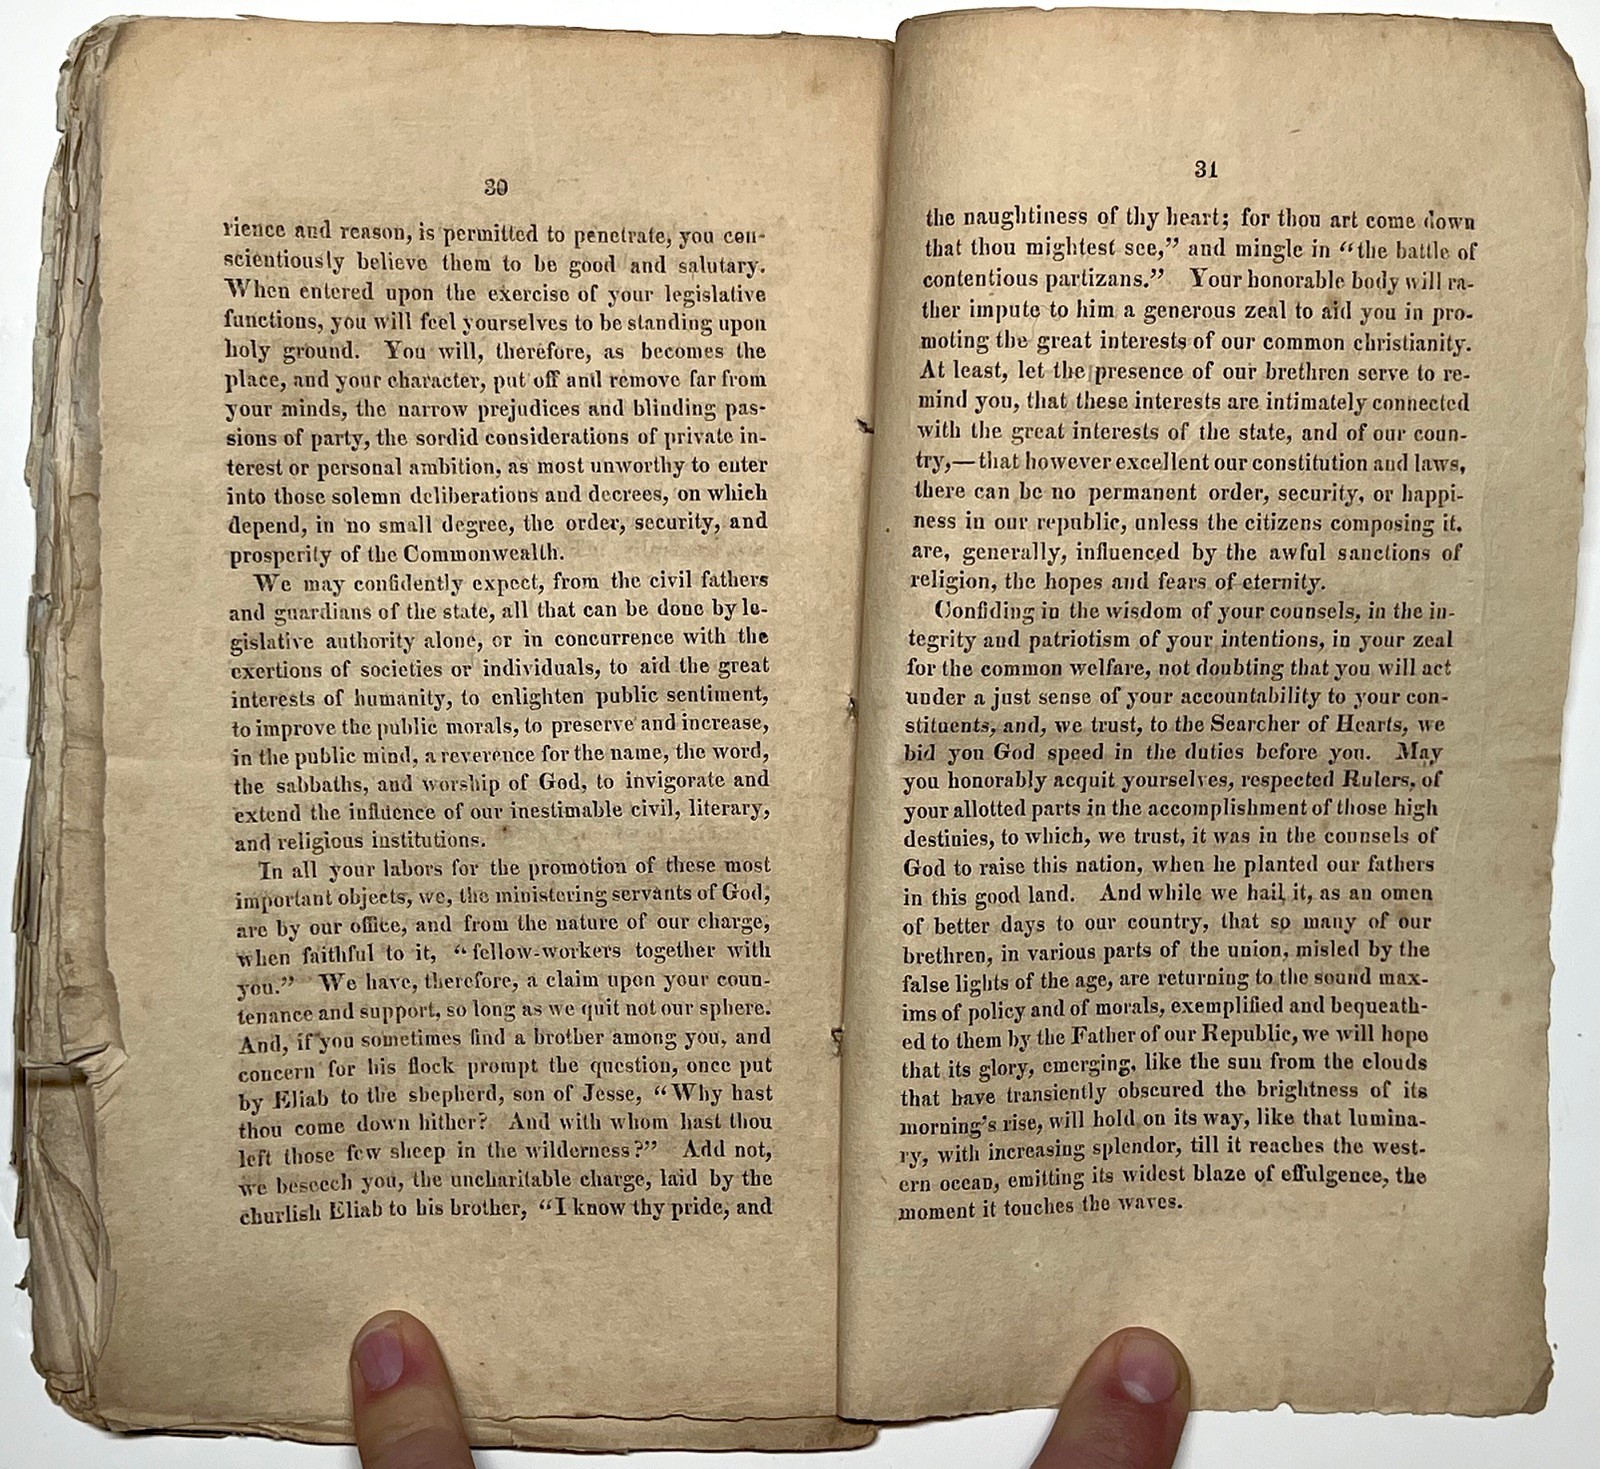 30
rience and reason, is permitted to penetrate, you con-
scientiously believe them to be good and salutary.
When entered upon the exercise of your legislative
functions, you will feel yourselves to be standing upon
holy ground. You will, therefore, as becomes the
place, and your character, put off and remove far from
your minds, the narrow prejudices and blinding pas-
sions of party, the sordid considerations of private in-
terest or personal ambition, as most unworthy to enter
into those solemn deliberations and decrees, on which
depend, in no small degree, the order, security, and
prosperity of the Commonwealth.
We may confidently expect, from the civil fathers
and guardians of the state, all that can be done by le-
gislative authority alone, or in concurrence with the
exertions of societies or individuals, to aid the great
interests of humanity, to enlighten public sentiment,
to improve the public morals, to preserve and increase,
in the public mind, a reverence for the name, the word,
the sabbaths, and worship of God, to invigorate and
extend the influence of our inestimable civil, literary,
and religious institutions.
In all your labors for the promotion of these most
important objects, we, the ministering servants of God,
are by our office, and from the nature of our charge,
when faithful to it, “fellow-workers together with
you.” We have, therefore, a claim upon your coun-
tenance and support, so long as we quit not our sphere.
And, if you sometimes find a brother among you, and
concern for his flock prompt the question, once put
by Eliab to the shepherd, son of Jesse, “Why hast
thou come down hither? And with whom hast thou
left those few sheep in the wilderness?” Add not,
we beseech you, the uncharitable charge, laid by the
churlish Eliab to his brother, “I know thy pride, and
31
the naughtiness of thy heart; for thou art come down
that thou mightest see,” and mingle in “the battle of
contentious partizans.” Your honorable body will ra-
ther impute to him a generous zeal to aid you in pro-
moting the great interests of our common christianity.
At least, let the presence of our brethren serve to re-
mind you, that these interests are intimately connected
with the great interests of the state, and of our coun-
try,—that however excellent our constitution and laws,
there can be no permanent order, security, or happi-
ness in our republic, unless the citizens composing it,
are, generally, influenced by the awful sanctions of
religion, the hopes and fears of eternity.
Confiding in the wisdom of your counsels, in the in-
tegrity and patriotism of your intentions, in your zeal
for the common welfare, not doubting that you will act
under a just sense of your accountability to your con-
stituents, and, we trust, to the Searcher of Hearts, we
bid you God speed in the duties before you. May
you honorably acquit yourselves, respected Rulers, of
your allotted parts in the accomplishment of those high
destinies, to which, we trust, it was in the counsels of
God to raise this nation, when he planted our fathers
in this good land. And while we hail it, as an omen
of better days to our country, that so many of our
brethren, in various parts of the union, misled by the
false lights of the age, are returning to the sound max-
ims of policy and of morals, exemplified and bequeath-
ed to them by the Father of our Republic, we will hope
that its glory, emerging, like the sun from the clouds
that have transiently obscured the brightness of its
morning's rise, will hold on its way, like that lumina-
ry, with increasing splendor, till it reaches the west-
ern ocean, emitting its widest blaze of effulgence, the
moment it touches the waves.